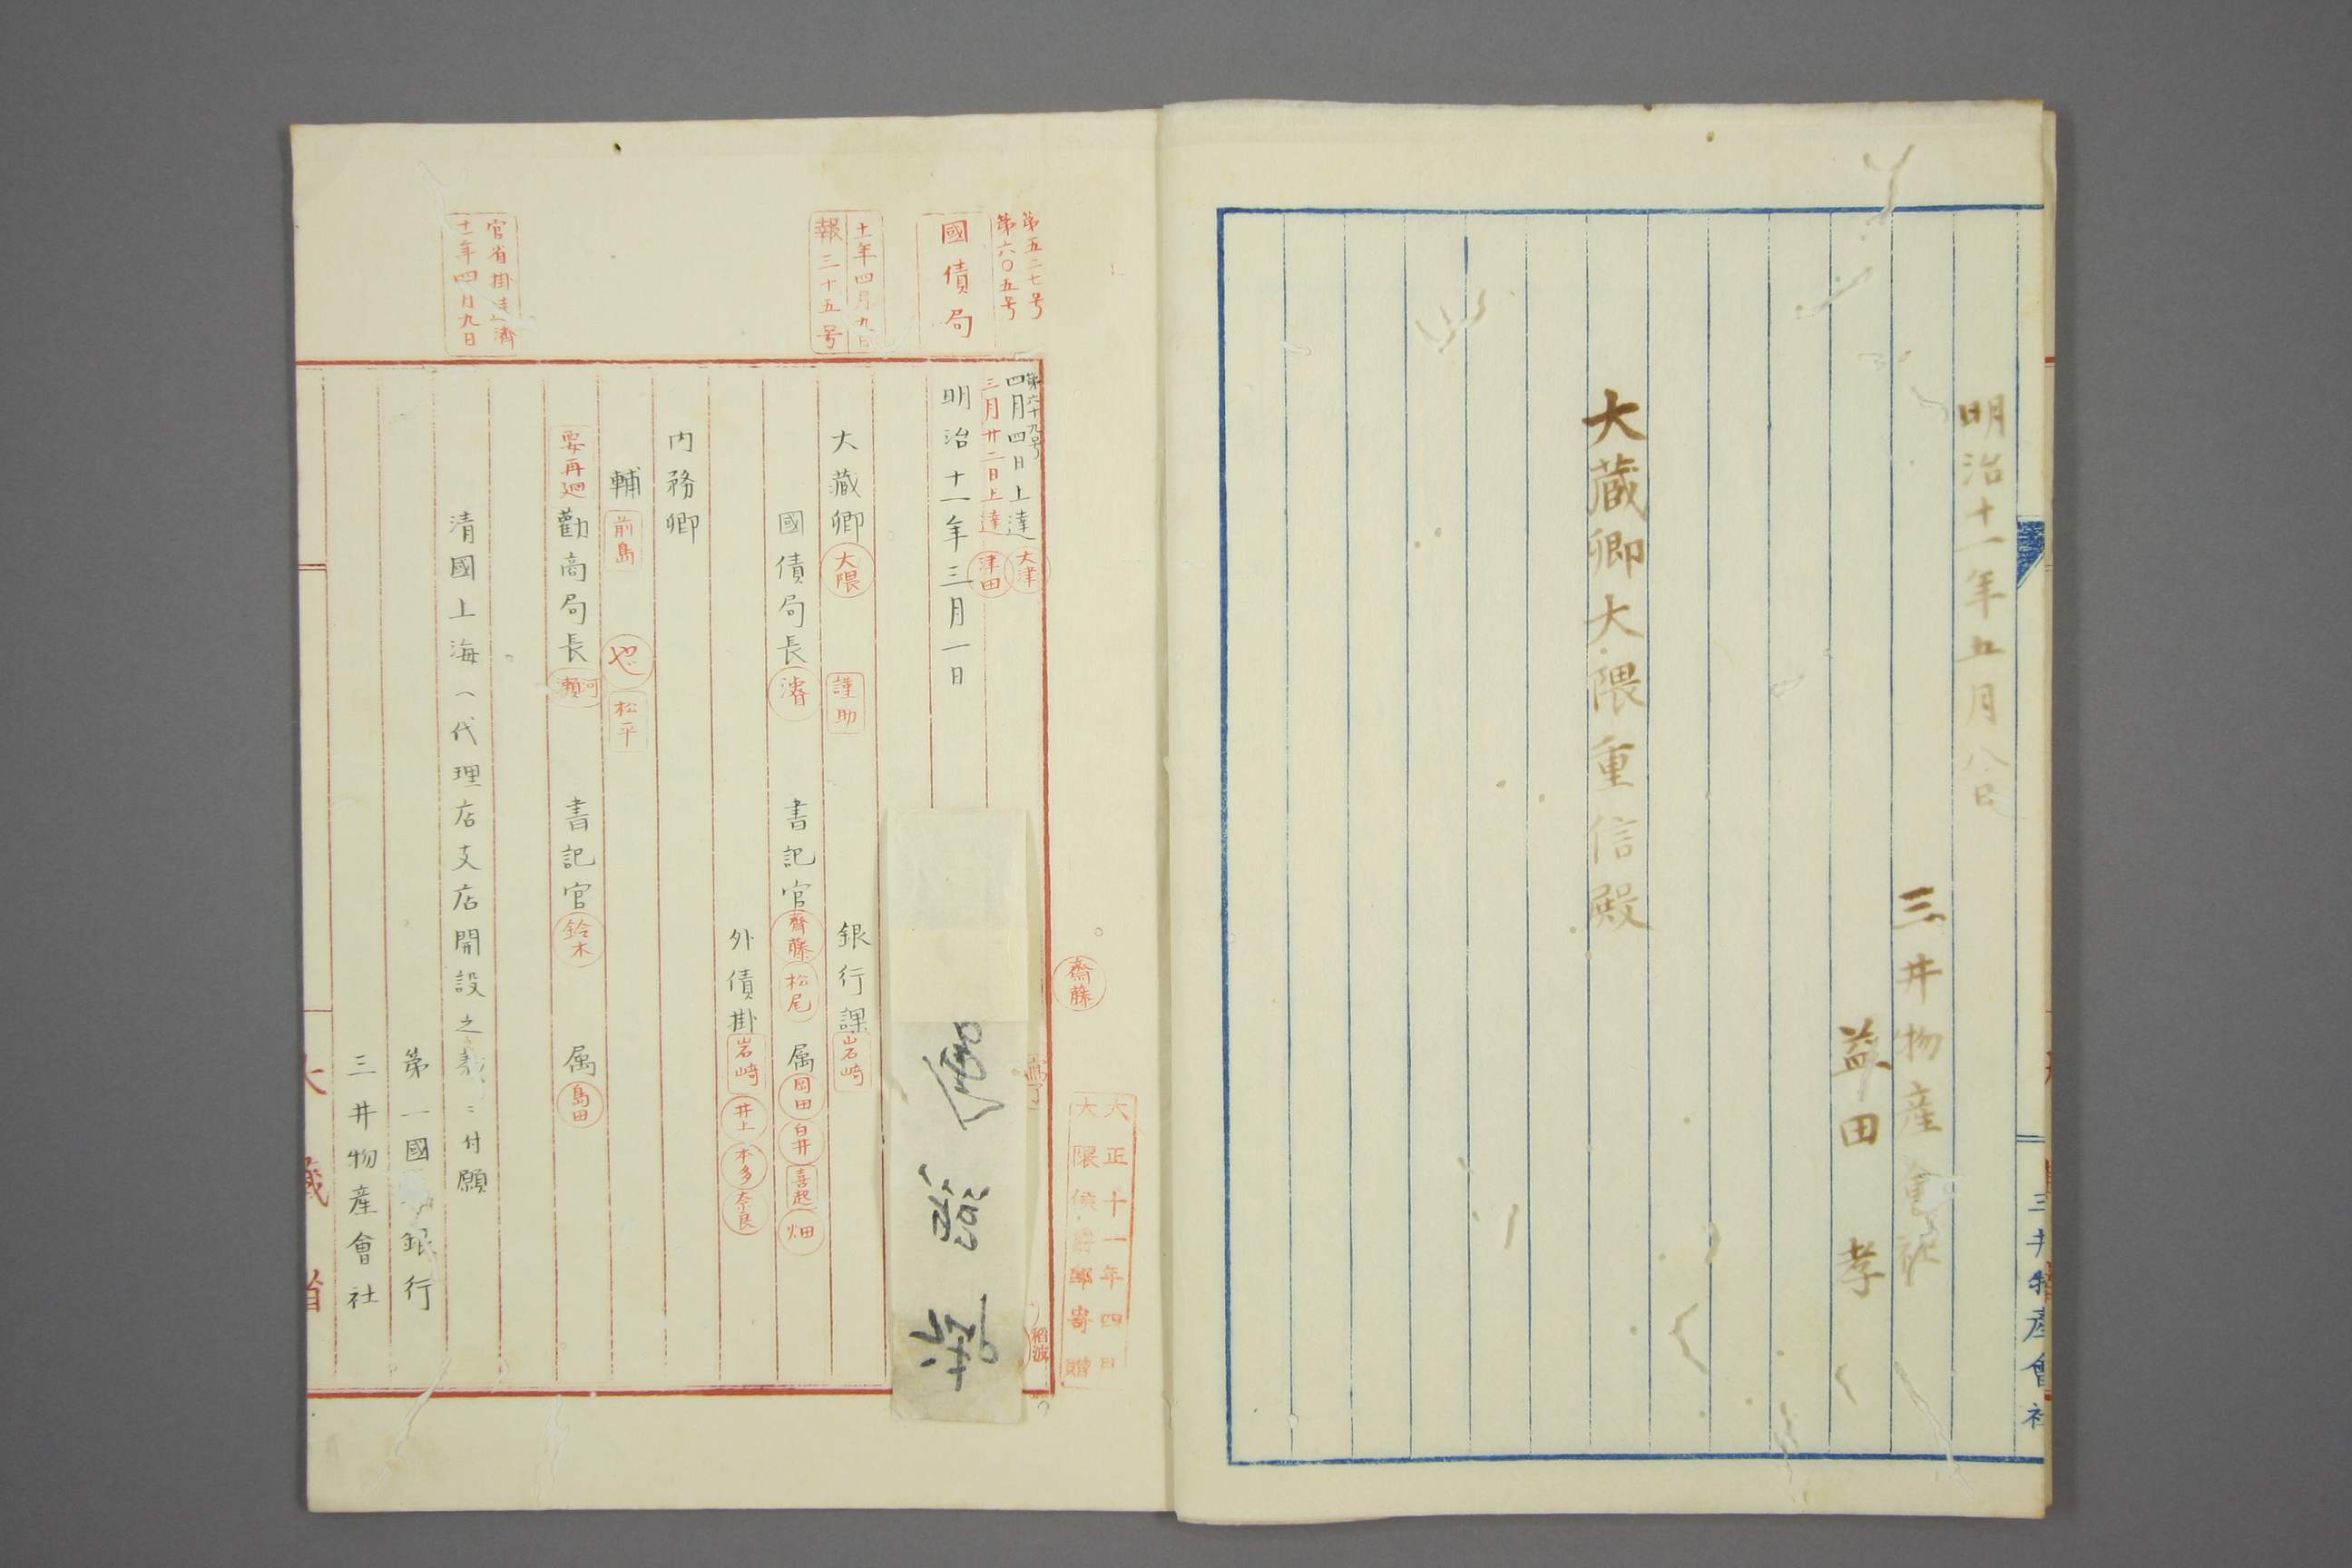 明治十一年五月八日
三井物産會社
益田 孝
大蔵卿大隈重信殿
三井物産會社
大正十一年四月
大隈侯爵郵寄贈
齋藤
稻波
第五二七号
第六〇五号
國債局
十一年四月九日
報三十五号
官省掛達濟
十一年四月九日
第六十九号
四月四日上達 大津
三月廿二日上達 津田
明治十一年三月一日
銀行課 岩崎
大藏卿 大隈 謹助
國債局長 濬 書記官 齊藤 松尾 属 岡田 白井 喜起 畑
外債掛 岩崎 井上 本多 奈良
内務卿
輔 前島 松平
要再廻 勸商局長 河瀬 書記官 鈴木 属 島田
清國上海へ代理店支店開設之義ニ付願
第一國立銀行
三井物産會社
大藏省